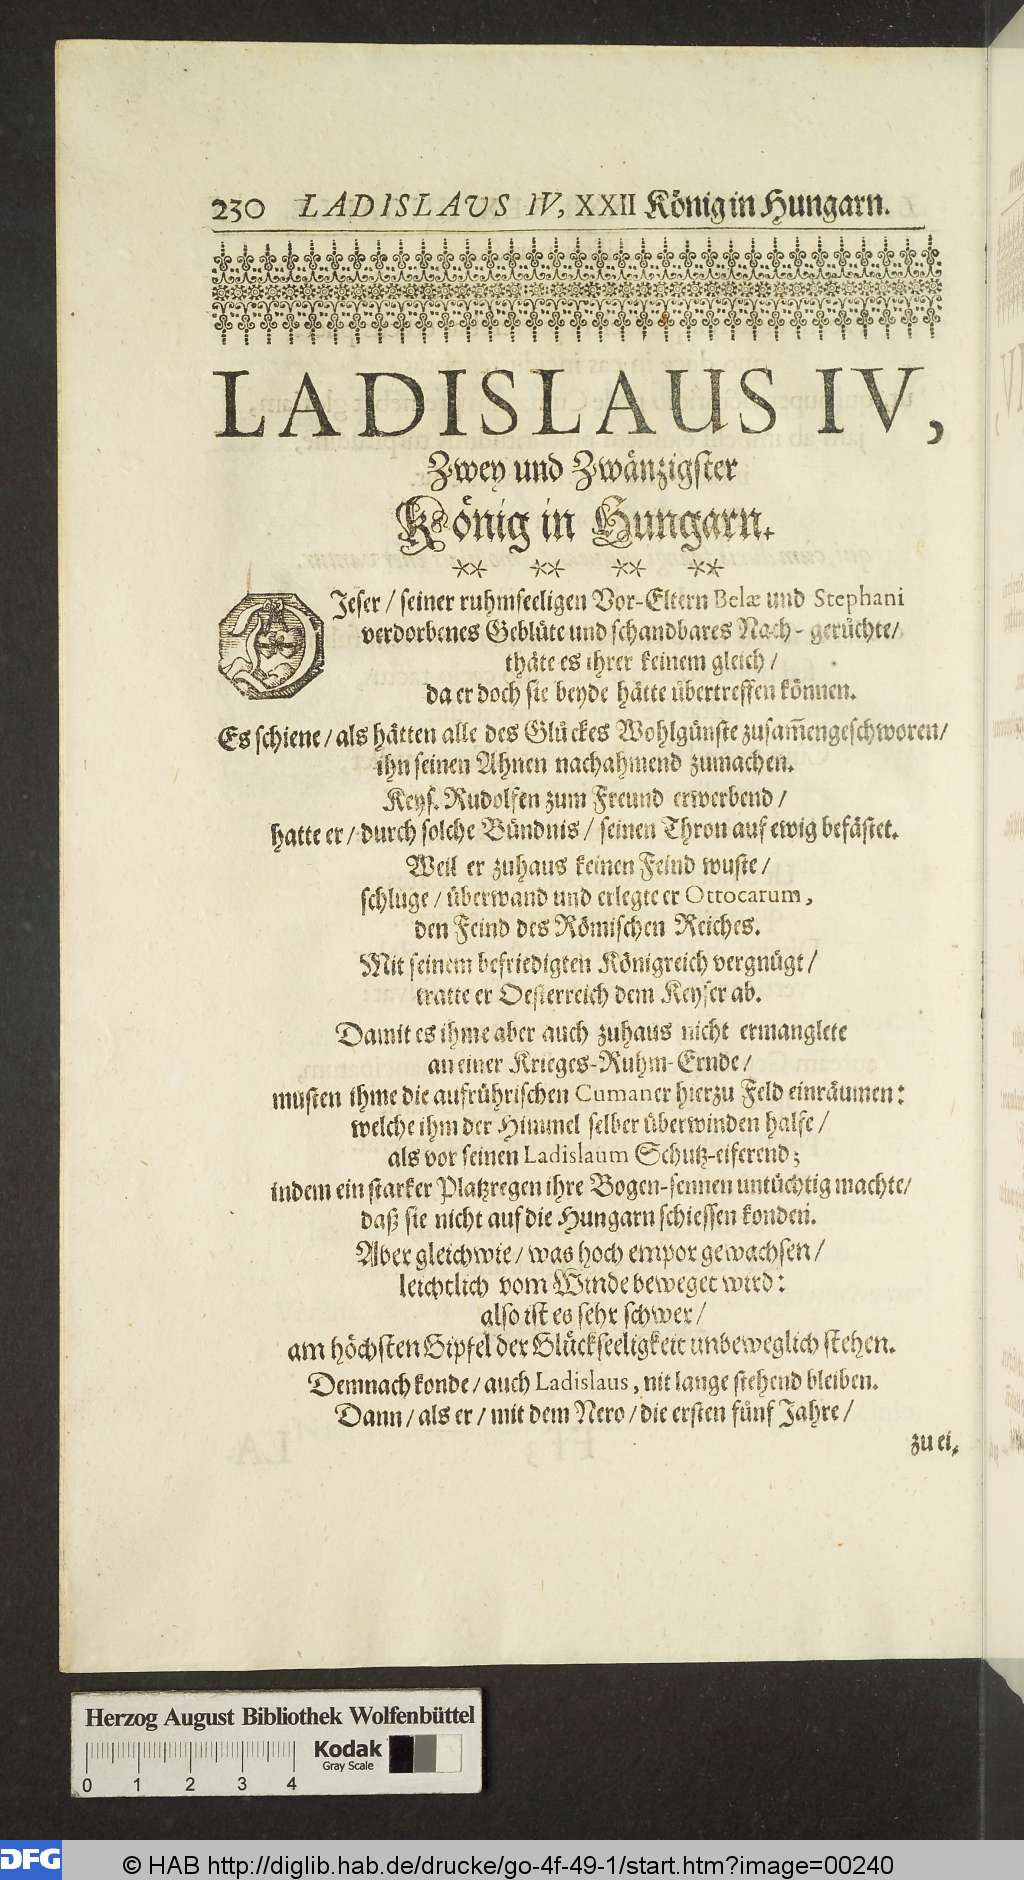 230 LADISLAVS IV, XXII König in Hungarn.
LADISLAUS IV,
Zwey und Zwänzigster
König in Hungarn.
** ** ** **
DIeser / seiner ruhmseeligen Vor-Eltern Belæ und Stephani
verdorbenes Geblüte und schandbares Nach-gerüchte /
thäte es ihrer keinem gleich /
da er doch sie beyde hätte übertreffen können.
Es schiene / als hätten alle des Glückes Wohlgünste zusam̅engeschworen /
ihn seinen Ahnen nachahmend zumachen.
Keys. Rudolfen zum Freund erwerbend /
hatte er / durch solche Bündnis / seinen Thron auf ewig befästet.
Weil er zuhaus keinen Feind wuste /
schluge / überwand und erlegte er Ottocarum,
den Feind des Römischen Reiches.
Mit seinem befriedigten Königreich vergnügt /
tratte er Oesterreich dem Keyser ab.
Damit es ihme aber auch zuhaus nicht ermanglete
an einer Krieges-Ruhm-Ernde /
musten ihme die aufrührischen Cumaner hierzu Feld einräumen:
welche ihm der Himmel selber überwinden halfe /
als vor seinen Ladislaum Schutz-eiferend;
indem ein starker Platzregen ihre Bogen-sennen untüchtig machte /
daß sie nicht auf die Hungarn schiessen konden.
Aber gleichwie / was hoch empor gewachsen /
leichtlich vom Winde beweget wird:
also ist es sehr schwer /
am höchsten Gipfel der Glückseeligkeit unbeweglich stehen.
Demnach konde / auch Ladislaus, nit lange stehend bleiben.
Dann / als er / mit dem Nero / die ersten fünf Jahre /
zu ei,
Herzog August Bibliothek Wolfenbüttel
Kodak
Gray Scale
0 1 2 3 4
DFG © HAB http://diglib.hab.de/drucke/go-4f-49-1/start.htm?image=00240